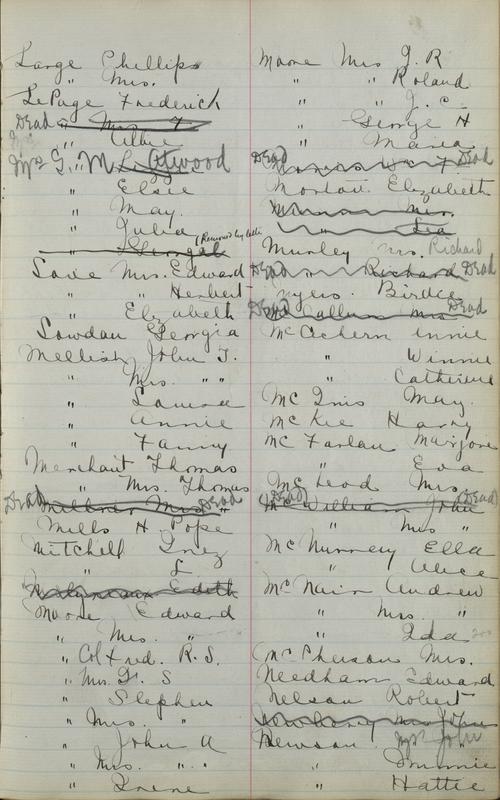 Large Phillips
" Mrs.
LePage Frederick
Dead " Mrs. F
" Ollie
Mrs G. M L. Atwood
" Elsie
" May.
" Julia
(Removed by letter
" George
Love Mrs. Edward
" " Herbert
" Elizabeth
Lowdan Georgia
Mellish John T.
" Mrs. " "
" Laura
" Annie
" Fanny
Merchant Thomas
" Mrs. Thomas
Dead Millner Mrs " Dead
Mills H. Pope
Mitchell Inez
" L
Edith
Moore Edward
" Mrs. "
" Col Fred. R. S.
" Mrs. F. S
" Stephen
" Mrs. "
" John A
" Mrs. " "
" Irene
Moore Mrs J. R
" " Roland
" " J. C.
" George H
" Maria
Dead Mrs Dead
Morton Elizabeth
Mrs.
" Lea
Munley Mrs. Richard
Dead " Richard Dead
Myers. Birdie
Dead McCallum Mrs Dead
McEachern Annie
" Winnie
" Catherine
McInis May.
McKie Harry
McFarlan Marjorie
" Eva
McLeod Mrs.
(Dead) McWilliam John (Dead)
" Mrs "
McNunney Ella
" Alice
McNair Andrew
" Mrs. "
" Ida
McPherson Mrs.
Needham Edward
Nelson Robert
Mrs John
Newson. Mrs John
" Minnie
" Hattie